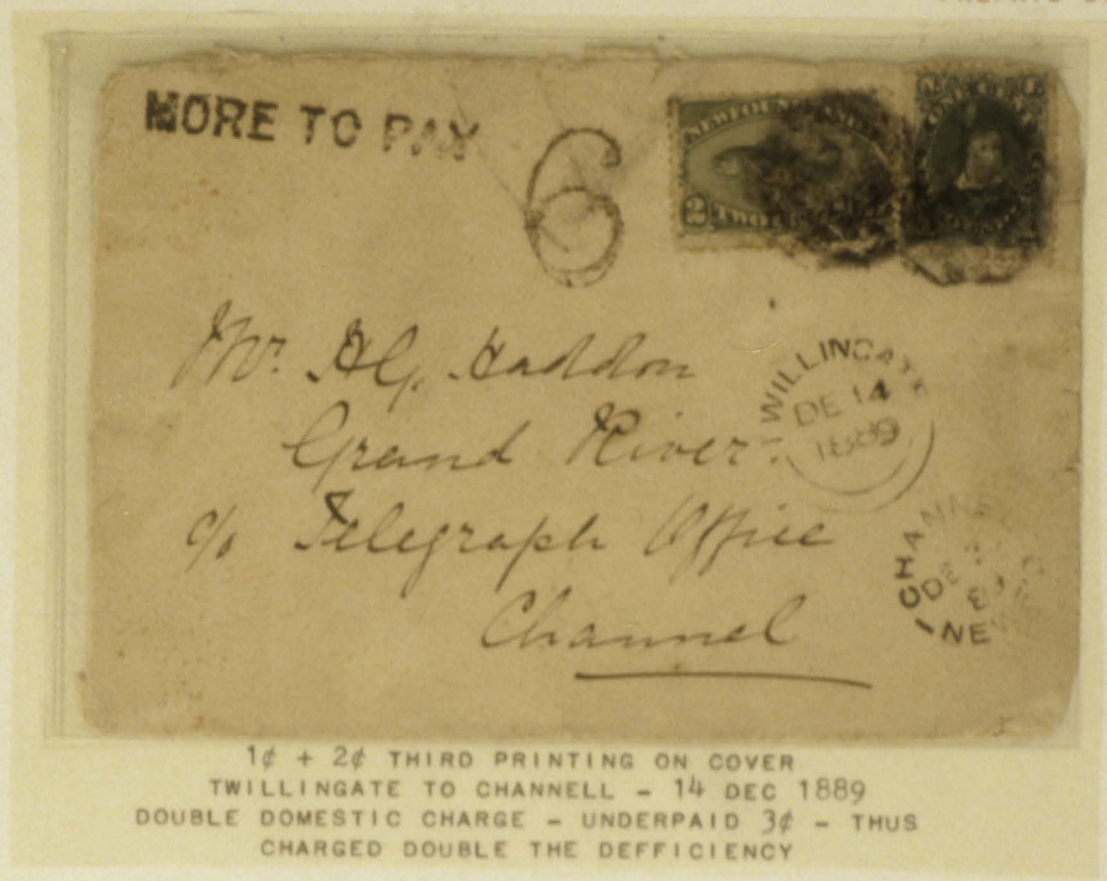 MORE TO PAY
6
NEWFOUNDLAND
2 TWO
ONE CENT
Mr. H.G. Haddon
Grand River.
c/o Telegraph Office
Channel
TWILLINGATE
DE 14
1889
CHANNE
DE
89
NE
1¢ + 2¢ THIRD PRINTING ON COVER
TWILLINGATE TO CHANNELL - 14 DEC 1889
DOUBLE DOMESTIC CHARGE - UNDERPAID 3¢ - THUS
CHARGED DOUBLE THE DEFFICIENCY